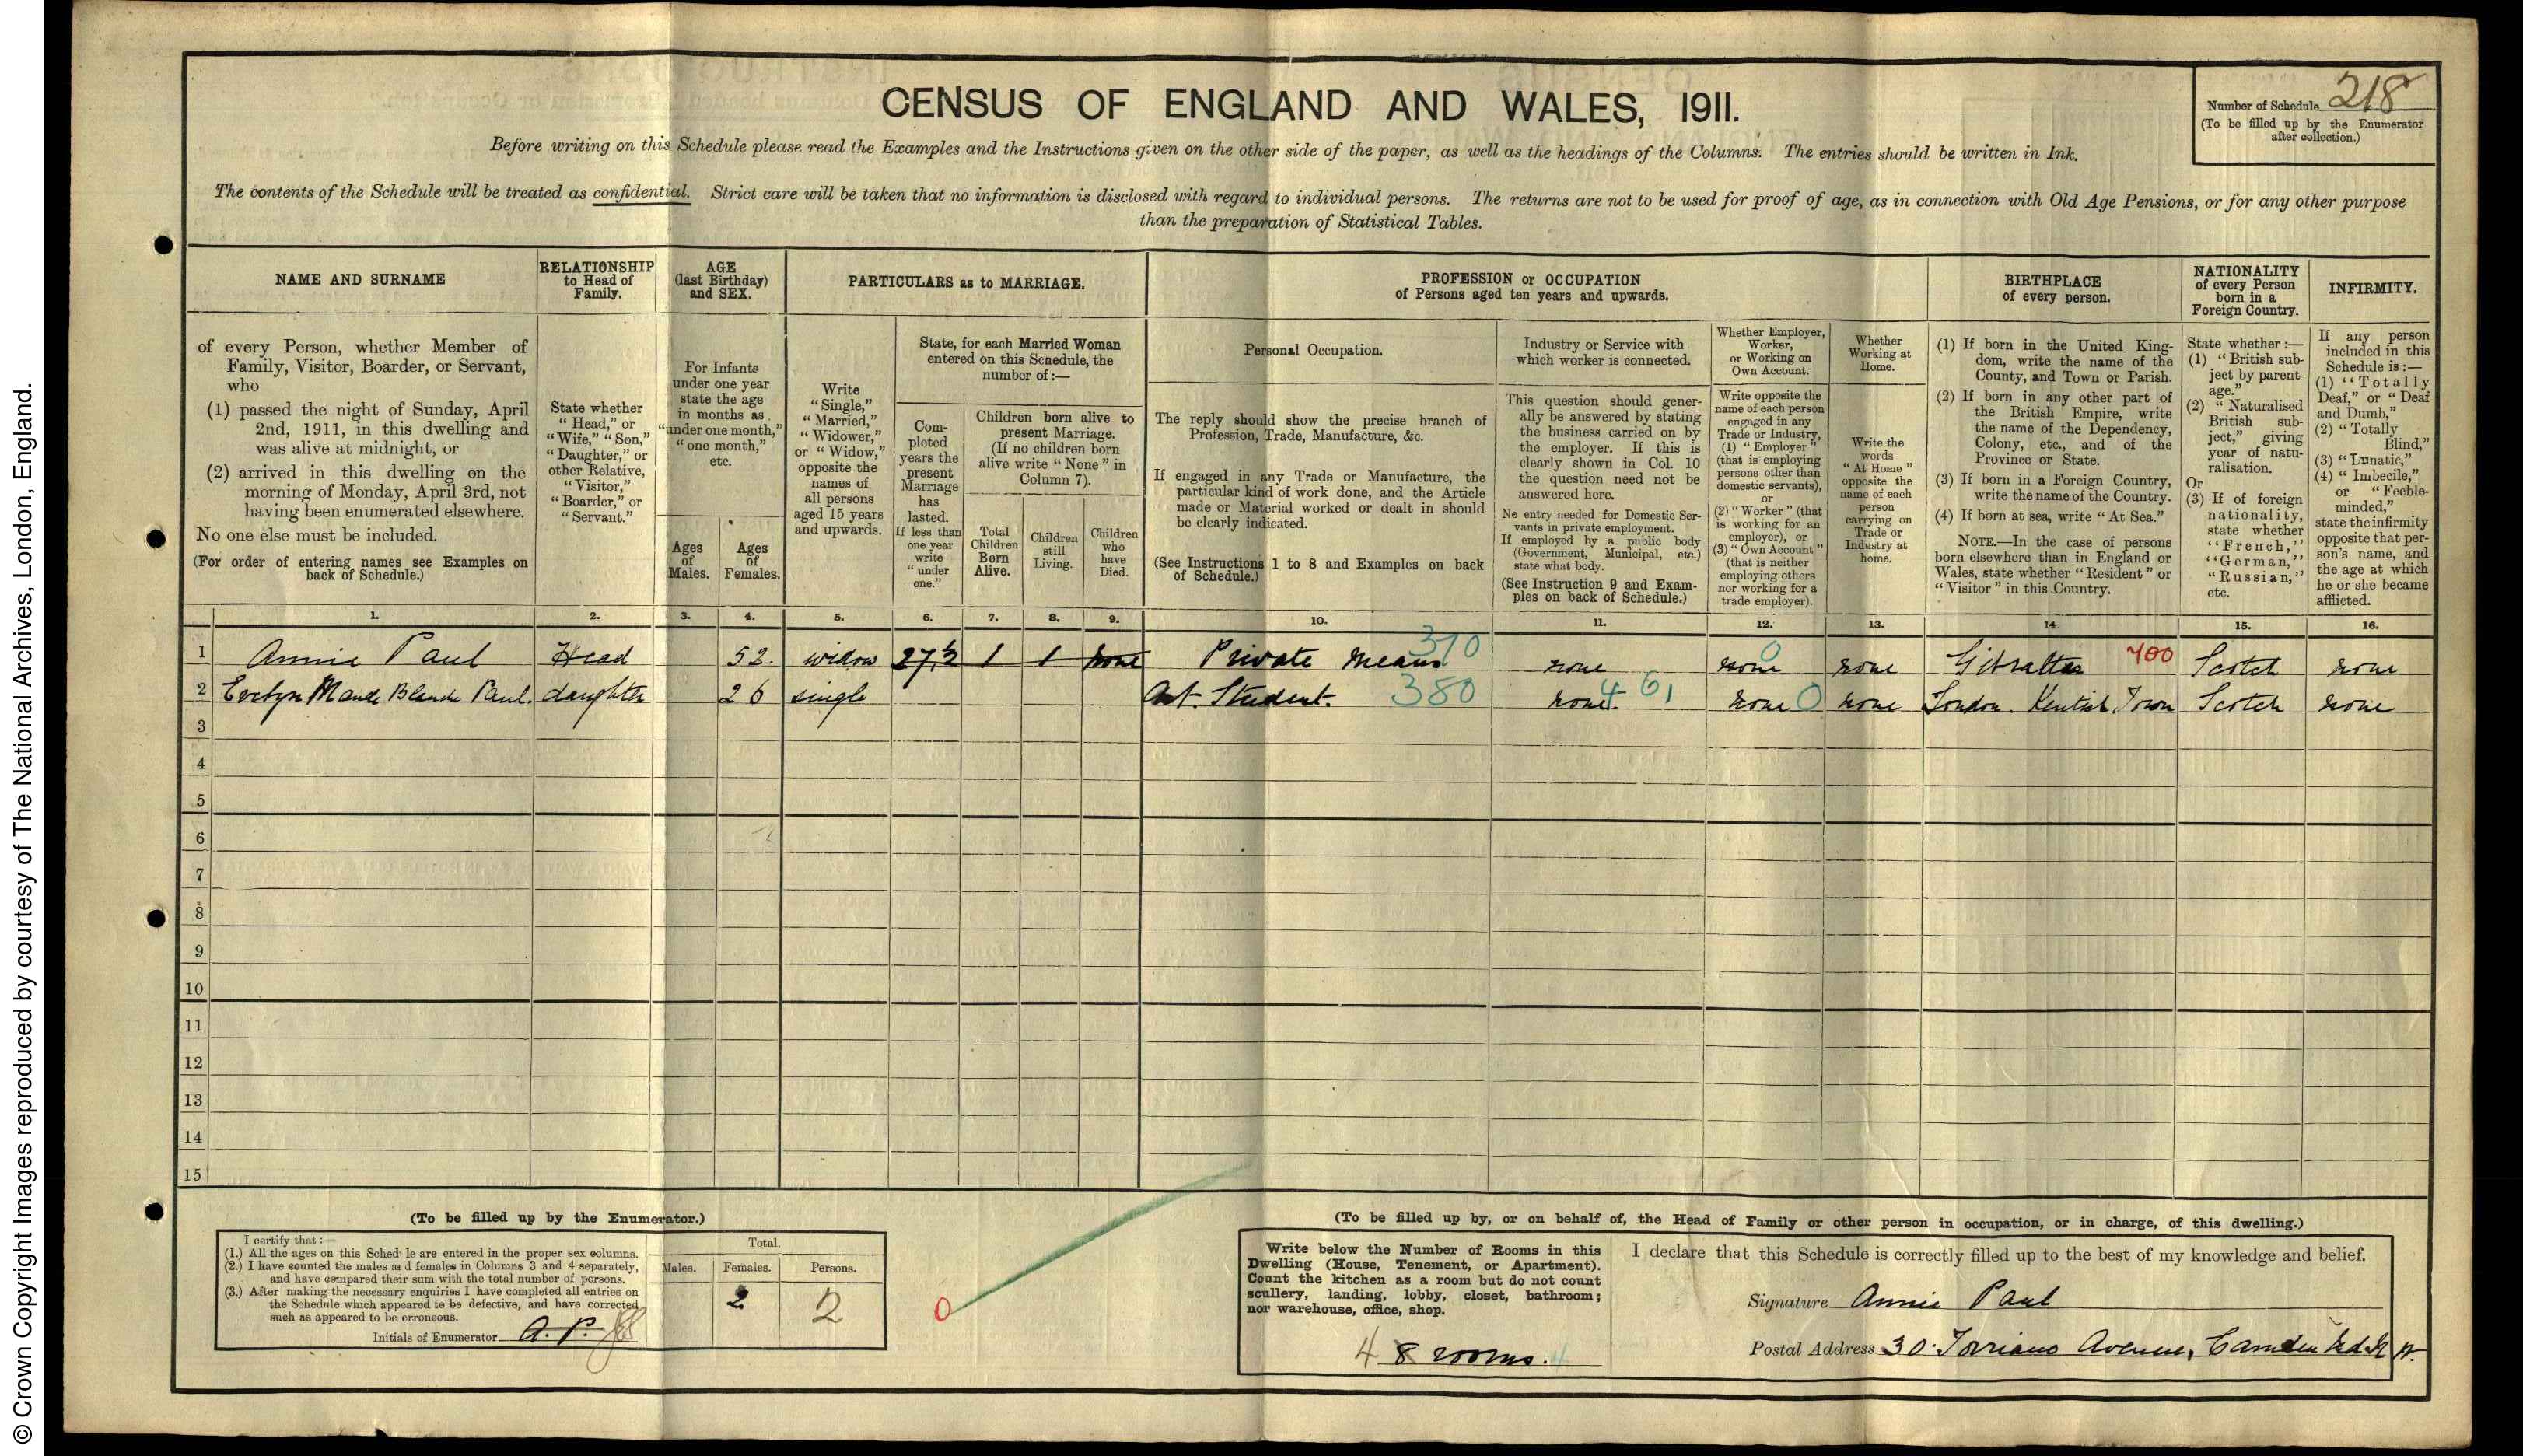 © Crown Copyright Images reproduced by courtesy of The National Archives, London, England.
CENSUS OF ENGLAND AND WALES, 1911.
Number of Schedule 218
(To be filled up by the Enumerator
after collection.)
Before writing on this Schedule please read the Examples and the Instructions given on the other side of the paper, as well as the headings of the Columns. The entries should be written in Ink.
The contents of the Schedule will be treated as confidential. Strict care will be taken that no information is disclosed with regard to individual persons. The returns are not to be used for proof of age, as in connection with Old Age Pensions, or for any other purpose
than the preparation of Statistical Tables.
NAME AND SURNAME
of every Person, whether Member of
Family, Visitor, Boarder, or Servant,
who
(1) passed the night of Sunday, April
2nd, 1911, in this dwelling and
was alive at midnight, or
(2) arrived in this dwelling on the
morning of Monday, April 3rd, not
having been enumerated elsewhere.
No one else must be included.
(For order of entering names see Examples on
back of Schedule.)
RELATIONSHIP
to Head of
Family.
State whether
"Head," or
"Wife," "Son,"
"Daughter," or
other Relative,
"Visitor,"
"Boarder," or
"Servant."
AGE
(last Birthday)
and SEX.
For Infants
under one year
state the age
in months as
"under one month,"
"one month,"
etc.
Ages
of
Males.
Ages
of
Females.
PARTICULARS as to MARRIAGE.
Write
"Single,"
"Married,"
"Widower,"
or "Widow,"
opposite the
names of
all persons
aged 15 years
and upwards.
State, for each Married Woman
entered on this Schedule, the
number of:—
Com-
pleted
years the
present
Marriage
has
lasted.
If less than
one year
write
"under
one."
Children born alive to
present Marriage.
(If no children born
alive write "None" in
Column 7).
Total
Children
Born
Alive.
Children
still
Living.
Children
who
have
Died.
PROFESSION or OCCUPATION
of Persons aged ten years and upwards.
Personal Occupation.
The reply should show the precise branch of
Profession, Trade, Manufacture, &c.
If engaged in any Trade or Manufacture, the
particular kind of work done, and the Article
made or Material worked or dealt in should
be clearly indicated.
(See Instructions 1 to 8 and Examples on back
of Schedule.)
Industry or Service with
which worker is connected.
This question should gener-
ally be answered by stating
the business carried on by
the employer. If this is
clearly shown in Col. 10
the question need not be
answered here.
No entry needed for Domestic Ser-
vants in private employment.
If employed by a public body
(Government, Municipal, etc.)
state what body.
(See Instruction 9 and Exam-
ples on back of Schedule.)
Whether Employer,
Worker,
or Working on
Own Account.
Write opposite the
name of each person
engaged in any
Trade or Industry,
(1) "Employer"
(that is employing
persons other than
domestic servants),
or
(2) "Worker" (that
is working for an
employer), or
(3) "Own Account"
(that is neither
employing others
nor working for a
trade employer).
Whether
Working at
Home.
Write the
words
"At Home"
opposite the
name of each
person
carrying on
Trade or
Industry at
home.
BIRTHPLACE
of every person.
(1) If born in the United King-
dom, write the name of the
County, and Town or Parish.
(2) If born in any other part of
the British Empire, write
the name of the Dependency,
Colony, etc., and of the
Province or State.
(3) If born in a Foreign Country,
write the name of the Country.
(4) If born at sea, write "At Sea."
NOTE.—In the case of persons
born elsewhere than in England or
Wales, state whether "Resident" or
"Visitor" in this Country.
NATIONALITY
of every Person
born in a
Foreign Country.
State whether:—
(1) "British sub-
ject by parent-
age."
(2) "Naturalised
British sub-
ject," giving
year of natu-
ralisation.
Or
(3) If of foreign
nationality,
state whether
"French,"
"German,"
"Russian,"
etc.
INFIRMITY.
If any person
included in this
Schedule is:—
(1) "Totally
Deaf," or "Deaf
and Dumb,"
(2) "Totally
Blind,"
(3) "Lunatic,"
(4) "Imbecile,"
or "Feeble-
minded,"
state the infirmity
opposite that per-
son's name, and
the age at which
he or she became
afflicted.
1. 2. 3. 4. 5. 6. 7. 8. 9. 10. 11. 12. 13. 14 15. 16.
1 Annie Paul Head 52. widow 27½ 1 1 none Private Means 370 none none 0 none Gibraltar 400 Scotch none
2 Evelyn Maude Blanche Paul. daughter 26 single Art. Student. 380 none 461 none 0 none London. Kentish Town Scotch none
3
4
5
6
7
8
9
10
11
12
13
14
15
(To be filled up by the Enumerator.)
I certify that:—
(1.) All the ages on this Sched le are entered in the proper sex columns.
(2.) I have counted the males and females in Columns 3 and 4 separately,
and have compared their sum with the total number of persons.
(3.) After making the necessary enquiries I have completed all entries on
the Schedule which appeared to be defective, and have corrected
such as appeared to be erroneous.
Initials of Enumerator A. P.
Total.
Males. Females. Persons.
2 2
0
(To be filled up by, or on behalf of, the Head of Family or other person in occupation, or in charge, of this dwelling.)
Write below the Number of Rooms in this
Dwelling (House, Tenement, or Apartment).
Count the kitchen as a room but do not count
scullery, landing, lobby, closet, bathroom;
nor warehouse, office, shop.
4 8 rooms. 4
I declare that this Schedule is correctly filled up to the best of my knowledge and belief.
Signature Annie Paul
Postal Address 30. Torriano Avenue, Camden Rd. N. W.